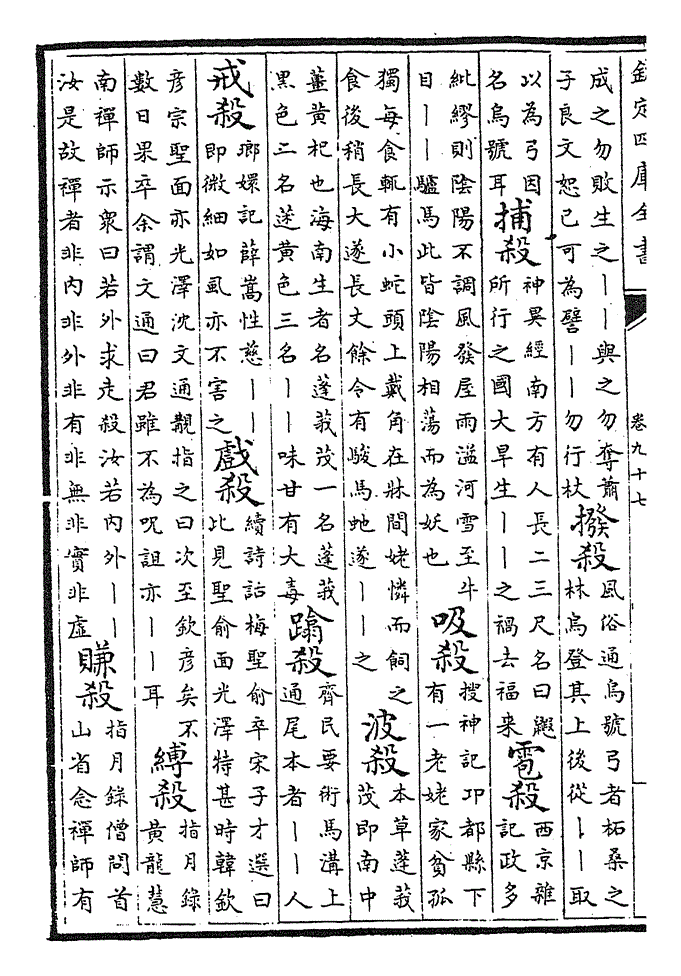 欽定四庫全書 卷九十七
成之勿敗生之丨丨與之勿奪蕭
子良文恕己可為譬丨丨勿行杖
撥殺
風俗通烏號弓者柘桑之
林烏登其上後從丨丨取
以為弓因
名烏號耳
捕殺
神異經南方有人長二三尺名曰魃
所行之國大旱生丨丨之禍去福來
雹殺
西京雜
記政多
紕繆則陰陽不調風發屋雨溢河雪至牛
目丨丨驢馬此皆陰陽相蕩而為妖也
吸殺
搜神記卭都縣下
有一老姥家貧孤
獨每食輒有小蛇頭上戴角在牀間姥憐而飼之
食後稍長大遂長丈餘令有駿馬虵遂丨丨之
波殺
本草蓬莪
茂即南中
薑黄杷也海南生者名蓬莪茂一名蓬莪
黑色二名蒁黄色三名丨丨味甘有大毒
蹹殺
齊民要術馬溝上
通尾本者丨丨人
戒殺
瑯嬛記薛嵩性慈丨丨
即微細如虱亦不害之
戲殺
續詩話梅聖俞卒宋子才選曰
比見聖俞面光澤特甚時韓欽
彦宗聖面亦光澤沈文通覩指之曰次至欽彦矣不
數日果卒余謂文通曰君雖不為呪詛亦丨丨耳
縛殺
指月錄
黄龍慧
南禪師示衆曰若外求走殺汝若内外丨丨
汝是故禪者非内非外非有非無非實非虛
賺殺
指月錄僧問首
山省念禪師有